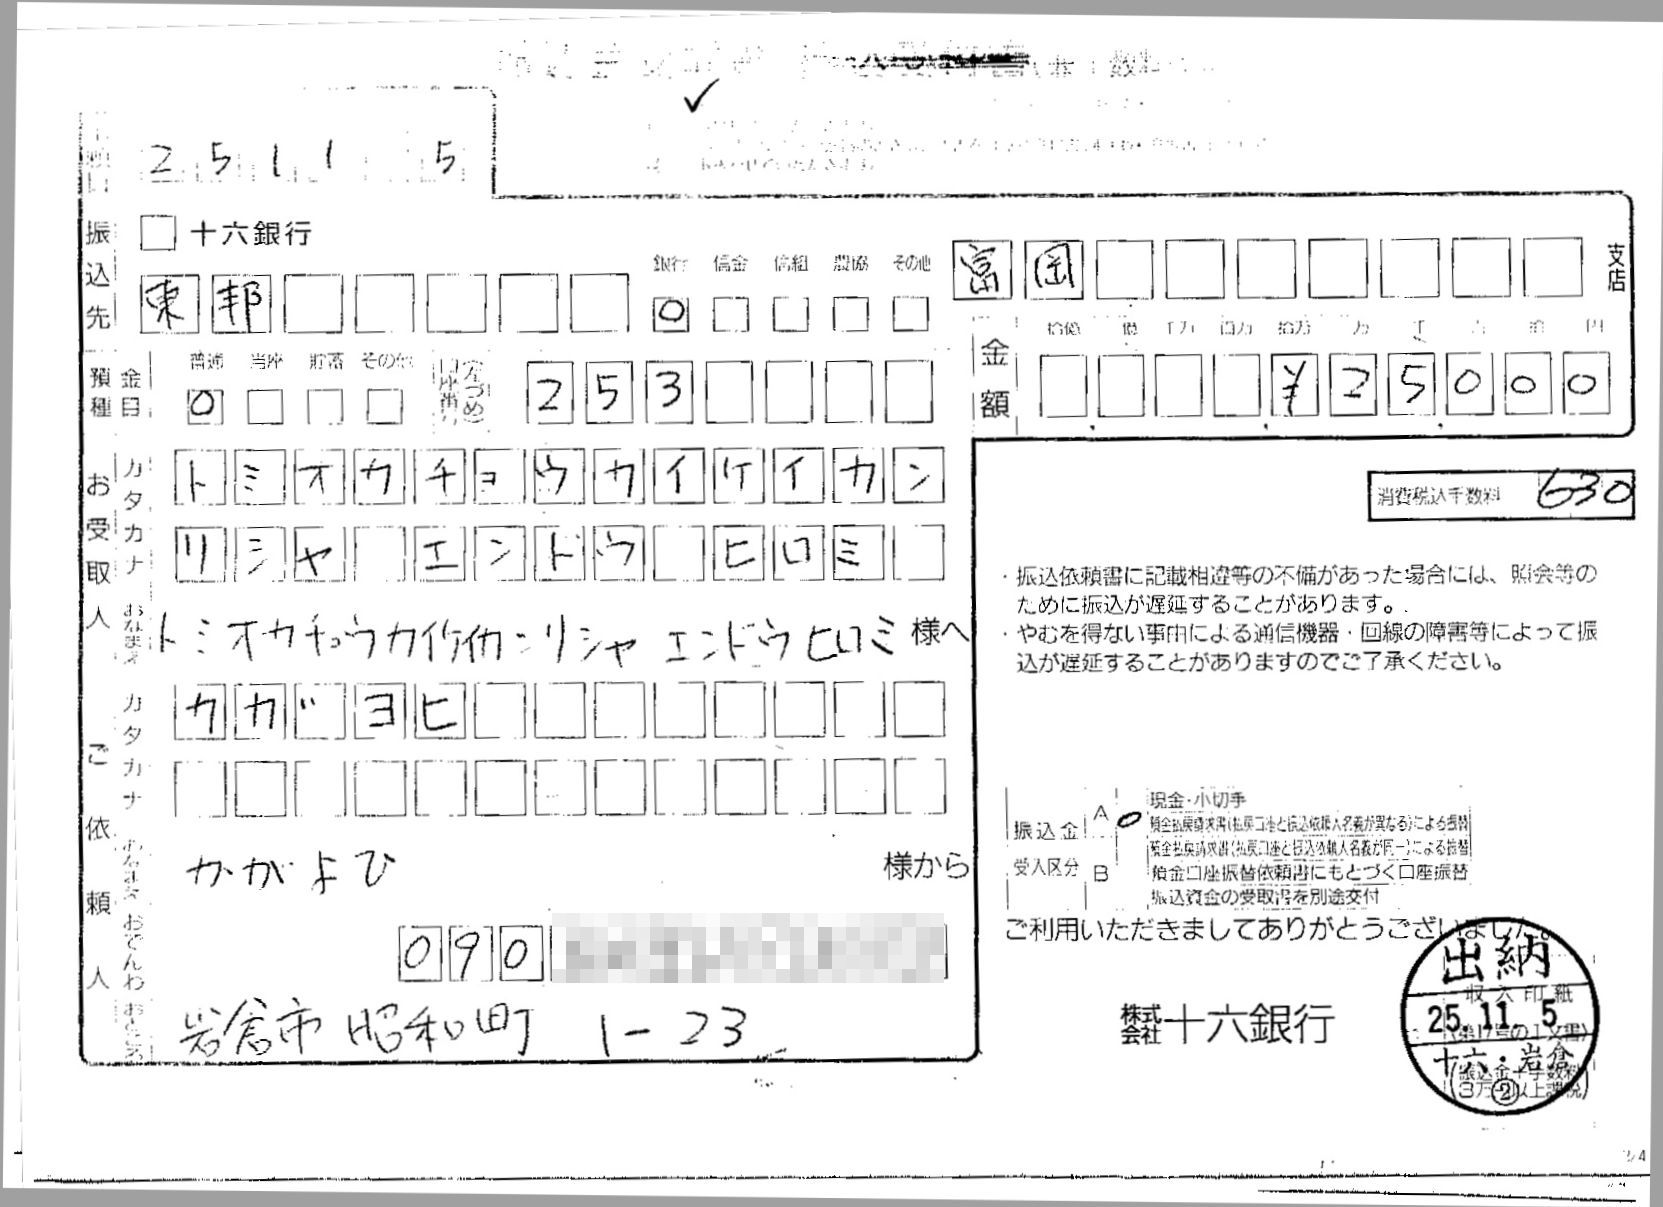 25 11 5
振込先
十六銀行
銀行 信金 信組 農協 その他
東邦
富岡
支店
預金種目
普通 当座 貯蓄 その他
253
金額
拾億 億 千万 百万 拾万 万 千 百 拾 円
¥25000
お受取人
カタカナ
トミオカチョウカイケイカン
リシャ エンドウ ヒロミ
おなまえ
トミオカチョウカイケイカンリシャ エンドウヒロミ 様へ
消費税込手数料 630
・振込依頼書に記載相違等の不備があった場合には、照会等の
ために振込が遅延することがあります。
・やむを得ない事由による通信機器・回線の障害等によって振
込が遅延することがありますのでご了承ください。
ご依頼人
カタカナ
カガ ヨヒ
おなまえ
かがよひ 様から
おでんわ
090
おところ
岩倉市 昭和町 1-23
振込金
受入区分
A
現金・小切手
預金払戻請求書(払戻口座と振込依頼人名義が異なる)による振替
B
預金払戻請求書(払戻口座と振込依頼人名義が同一)による振替
預金口座振替依頼書にもとづく口座振替
振込資金の受取書を別途交付
ご利用いただきましてありがとうございました。
株式会社十六銀行
収入印紙
出納
25.11.5
十六・岩倉
②